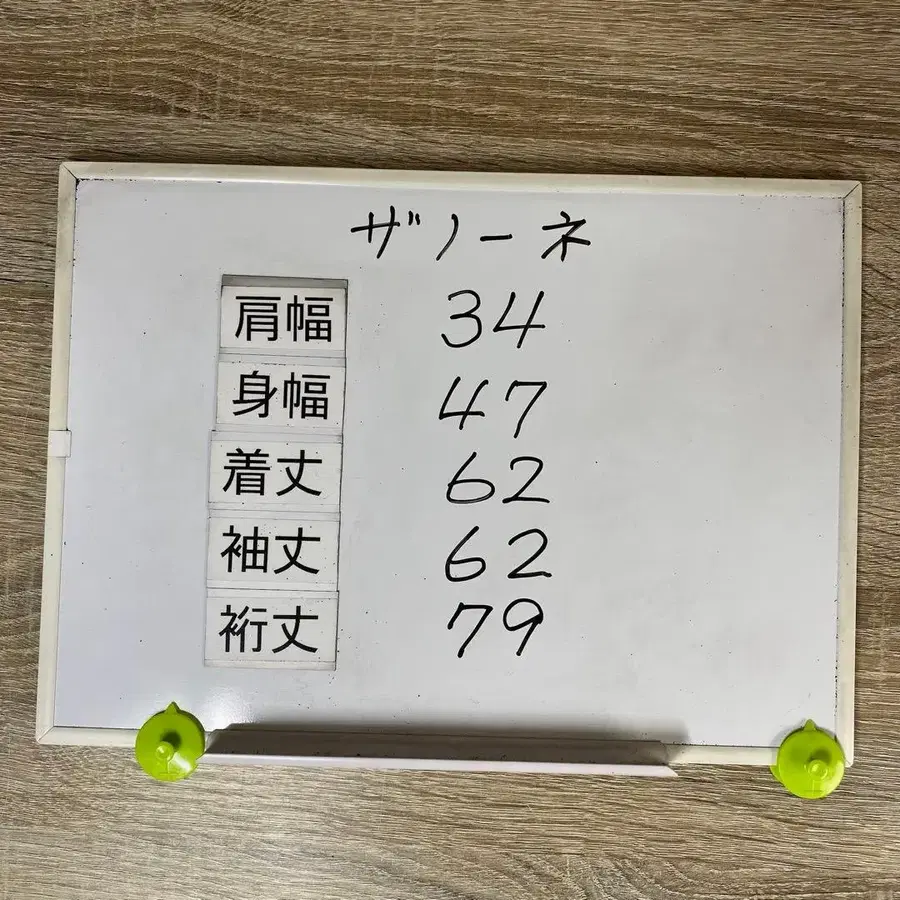 ザノーネ
肩幅 34
身幅 47
着丈 62
袖丈 62
裄丈 79